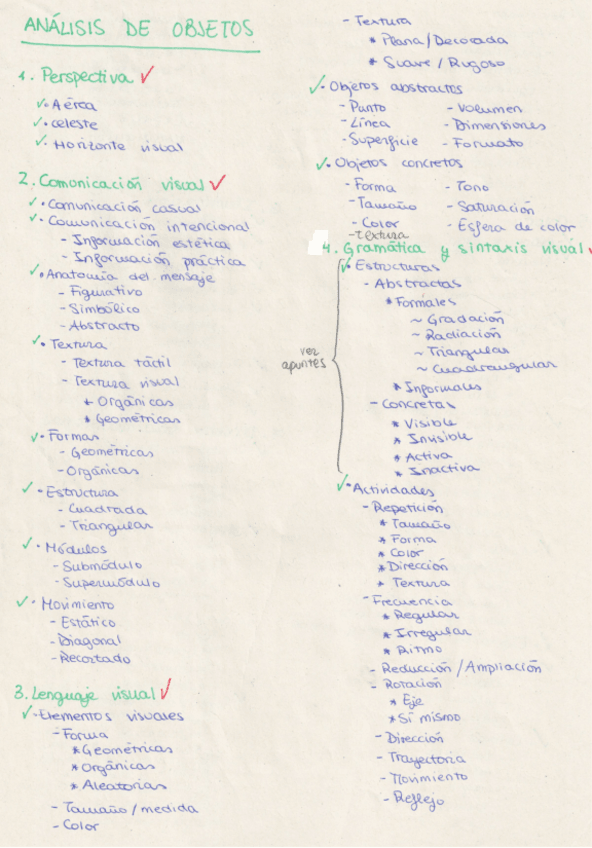 ANÁLISIS DE OBJETOS
1. Perspectiva ✓
✓• Aérea
✓• celeste
✓• Horizonte visual
2. Comunicación visual ✓
✓• Comunicación casual
✓• Comunicación intencional
- Información estética
- Información práctica
✓• Anatomía del mensaje
- Figurativo
- Simbólico
- Abstracto
✓• Textura
- Textura táctil
- Textura visual
* Orgánicas
* Geométricas
✓• Formas
- Geométricas
- Orgánicas
✓• Estructura
- Cuadrada
- Triangular
✓• Módulos
- Submódulo
- Supermódulo
✓• Movimiento
- Estático
- Diagonal
- Recortado
3. Lenguaje visual ✓
✓- Elementos visuales
- Forma
* Geométricas
* Orgánicas
* Aleatorias
- Tamaño / medida
- Color
- Textura
* Plana / Decorada
* Suave / Rugoso
✓• Objetos abstractos
- Punto - Volumen
- Línea - Dimensiones
- Superficie - Formato
✓• Objetos concretos
- Forma - Tono
- Tamaño - Saturación
- Color - Esfera de color
- Textura
4. Gramática y sintaxis visual ✓
✓• Estructuras
- Abstractas
* Formales
~ Gradación
~ Radiación
~ Triangular
~ Cuadrangular
ver
apuntes
* Informales
- Concretas
* Visible
* Invisible
* Activa
* Inactiva
✓• Actividades
- Repetición
* Tamaño
* Forma
* Color
* Dirección
* Textura
- Frecuencia
* Regular
* Irregular
* Ritmo
- Reducción / Ampliación
- Rotación
* Eje
* Sí mismo
- Dirección
- Trayectoria
- Movimiento
- Reflejo